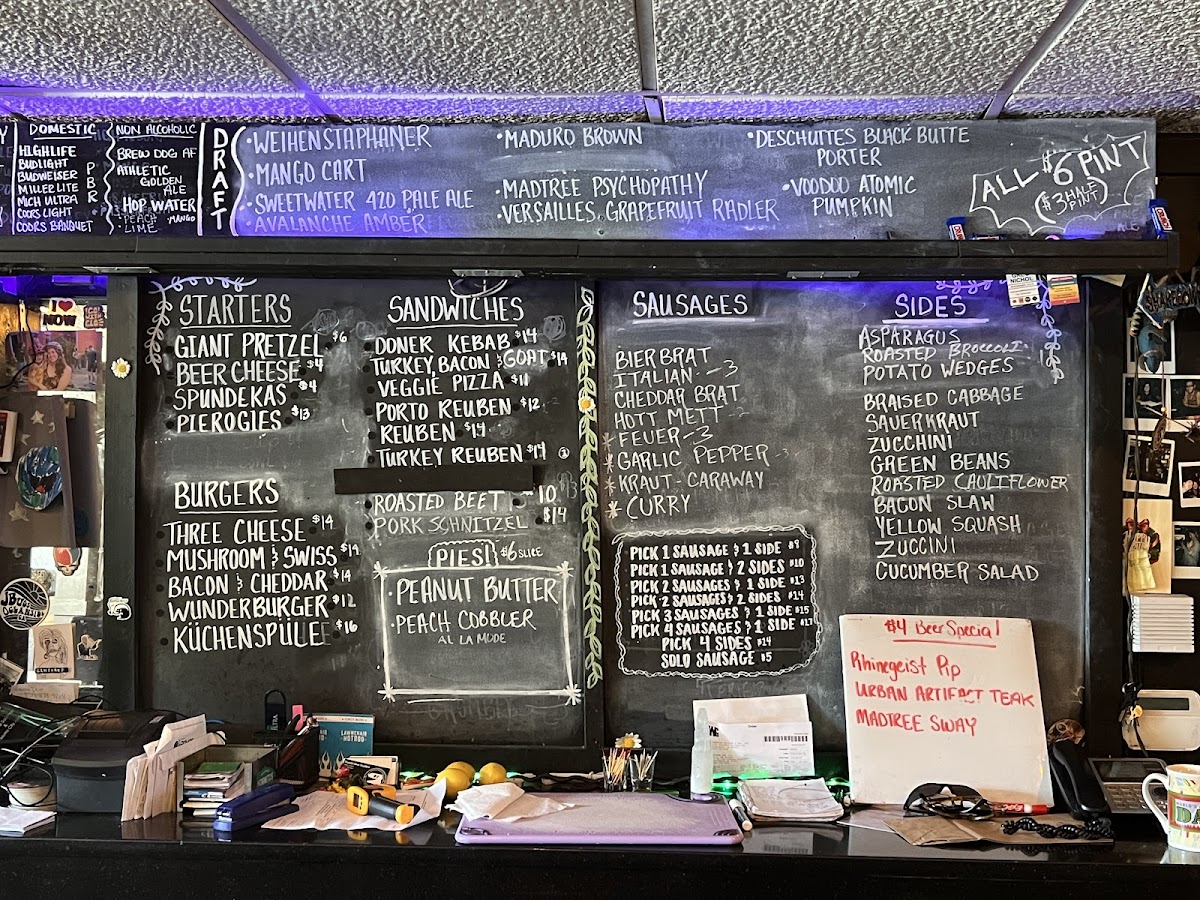 DOMESTIC
HIGHLIFE
BUDLIGHT
BUDWEISER
MILLER LITE
MICH ULTRA
COORS LIGHT
COORS BANQUET
PBR
NON ALCOHOLIC
BREW DOG AF
ATHLETIC
GOLDEN
ALE
HOP WATER
• PEACH • MANGO
• LIME
DRAFT
• WEIHENSTAPHANER
• MANGO CART
• SWEETWATER 420 PALE ALE
AVALANCHE AMBER
• MADURO BROWN
• MADTREE PSYCHOPATHY
• VERSAILLES GRAPEFRUIT RADLER
• DESCHUTTES BLACK BUTTE
PORTER
• VOODOO ATOMIC
PUMPKIN
ALL $6 PINT
($3 HALF
PINT)
STARTERS
GIANT PRETZEL $6
BEER CHEESE $4
SPUNDEKAS $4
PIEROGIES $13
BURGERS
THREE CHEESE $14
MUSHROOM & SWISS $14
BACON & CHEDDAR $14
WUNDERBURGER $12
KÜCHENSPÜLE $16
SANDWICHES
DONER KEBAB $14
TURKEY, BACON & GOAT $14
VEGGIE PIZZA $11
PORTO REUBEN $12
REUBEN $14
TURKEY REUBEN $14
ROASTED BEET - 10
PORK SCHNITZEL $14
PIES! $6 SLICE
• PEANUT BUTTER
• PEACH COBBLER
A LA MODE
SAUSAGES
BIER BRAT
ITALIAN - 3
CHEDDAR BRAT
HOTT METT
* FEUER - 3
* GARLIC PEPPER
* KRAUT-CARAWAY
* CURRY
PICK 1 SAUSAGE & 1 SIDE $9
PICK 1 SAUSAGE & 2 SIDES $10
PICK 2 SAUSAGES & 1 SIDE $13
PICK 2 SAUSAGES & 2 SIDES $14
PICK 3 SAUSAGES & 1 SIDE $15
PICK 4 SAUSAGES & 1 SIDE $17
PICK 4 SIDES $14
SOLO SAUSAGE $5
SIDES
ASPARAGUS
ROASTED BROCCOLI
POTATO WEDGES
BRAISED CABBAGE
SAUERKRAUT
ZUCCHINI
GREEN BEANS
ROASTED CAULIFLOWER
BACON SLAW
YELLOW SQUASH
ZUCCINI
CUCUMBER SALAD
$4 Beer Special
Rhinegeist Pip
URBAN ARTIFACT TEAK
MADTREE SWAY
I
NOW
NICHOL
LAWNCHAIR
HOTROD